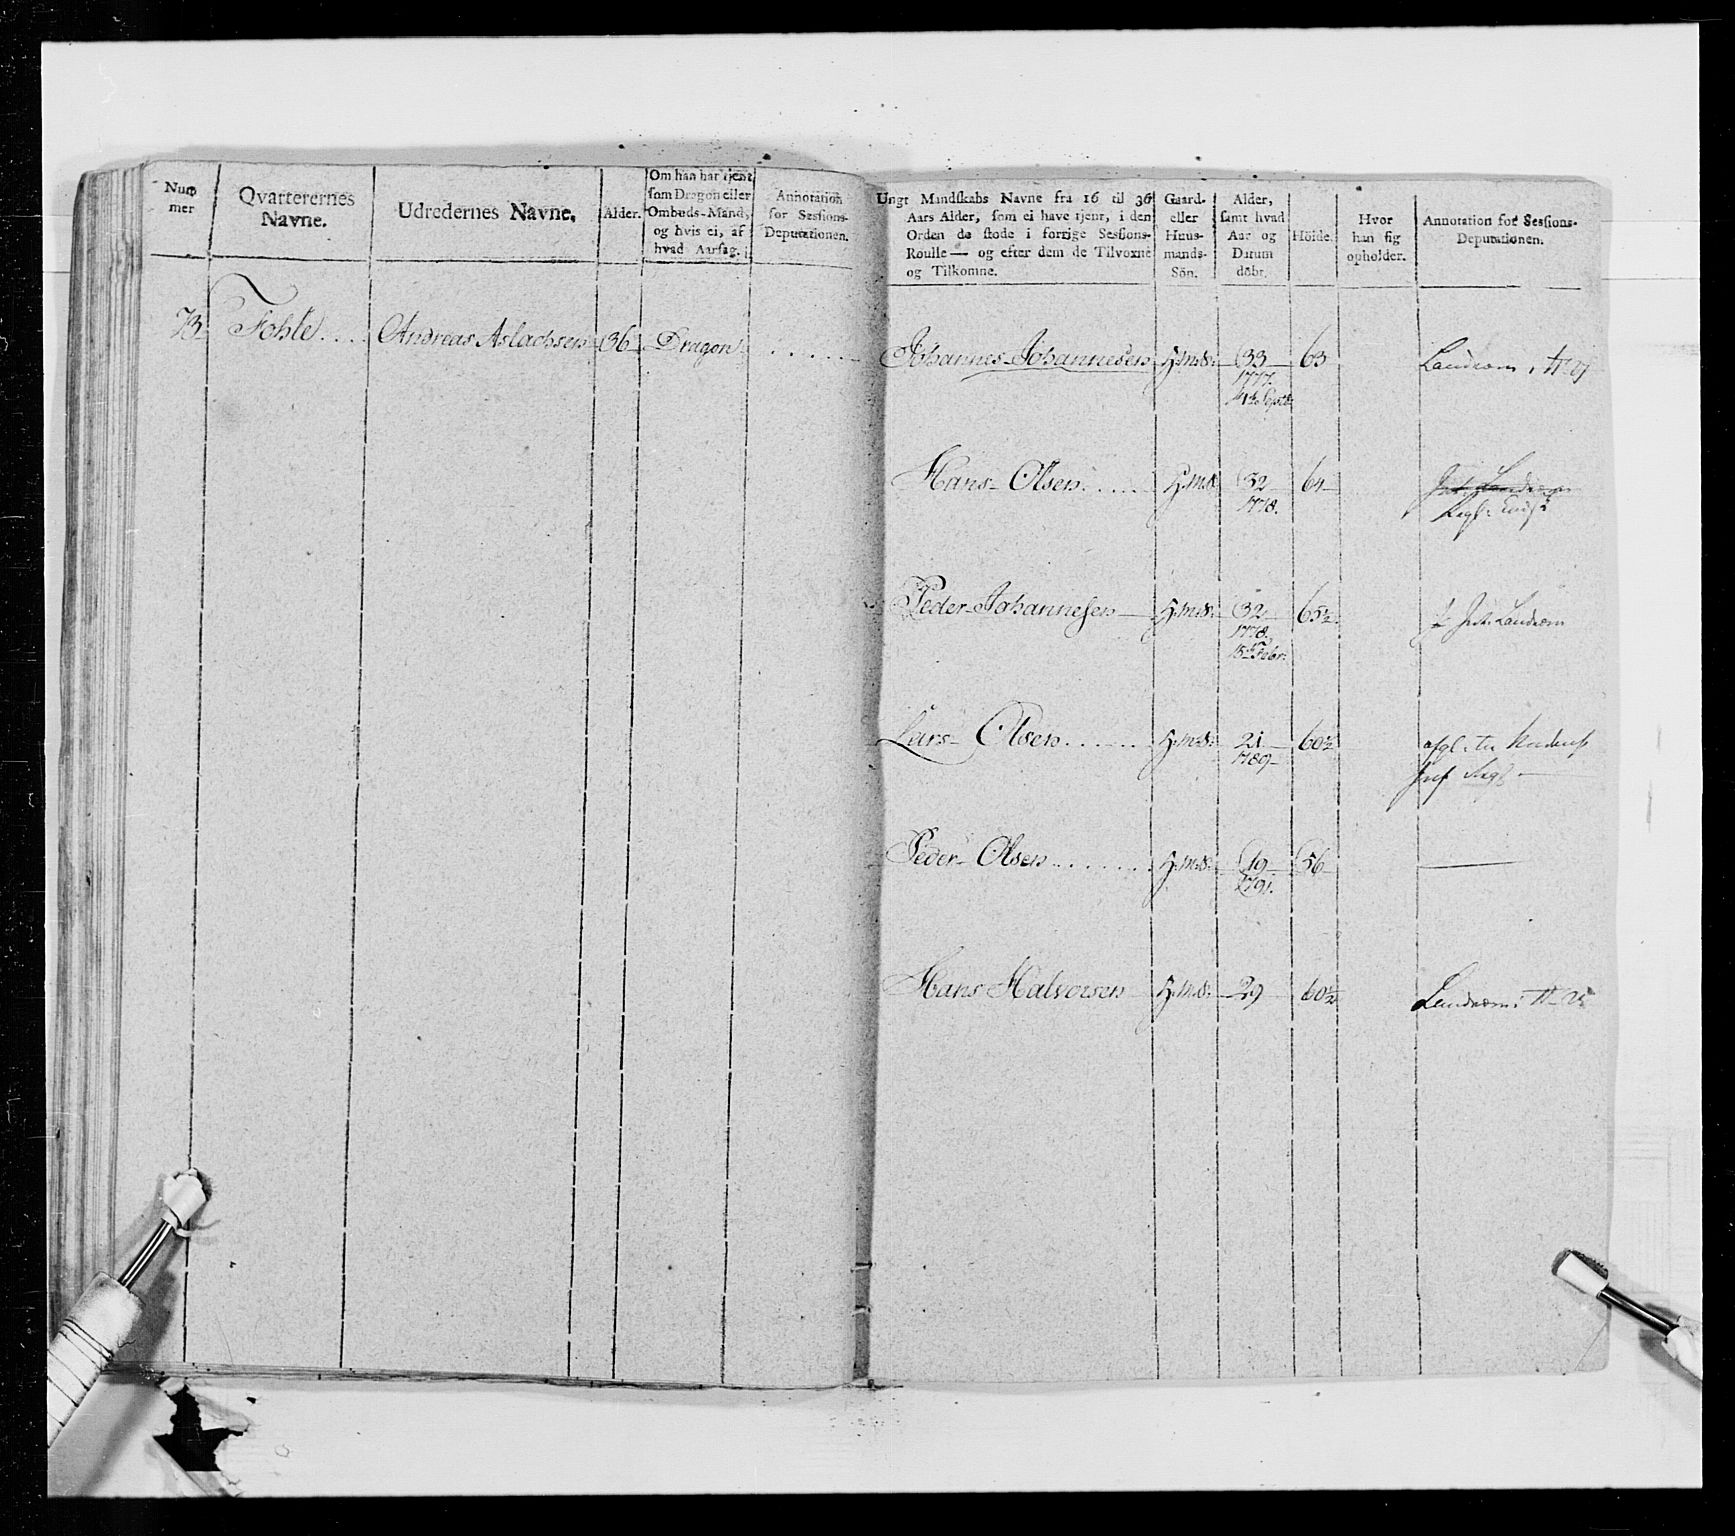 Num
mer
Qvarterernes
Navne.
Udredernes Navne.
Alder.
Om han har tjent
som Dragon eller
Ombuds-Mand,
og hvis ei, af
hvad Aarsag.
Annotation
for Sessions-
Deputationen.
Ungt Mandskabs Navne fra 16 til 36
Aars Alder, som ei have tjent, i den
Orden de stode i forrige Sessions-
Roulle — og efter dem de Tilvoxne
og Tilkomne.
Gaard-
eller
Huus-
mands-
Sön.
Alder,
samt hvad
Aar og
Datum
döbt.
Höide.
Hvor
han sig
opholder.
Annotation for Sessions-
Deputationen.
73 Fohle .... Andreas Aslachsen 36 Dragon ......
Johannes Johannesen H.m.S. 33 63 Landværn
1777.
Septr
Hans Olsen ..... H.m.S. 32 64
1778.
Peder Johannesen H.m.S. 32 65½ Landværn
1778.
15 Febr:
Lars Olsen ...... H.m.S. 21 60½
1789
Peder Olsen ....... H.m.S. 19 56 —
1791.
Hans Halvorsen H.m.S. 29 60½ Landværn